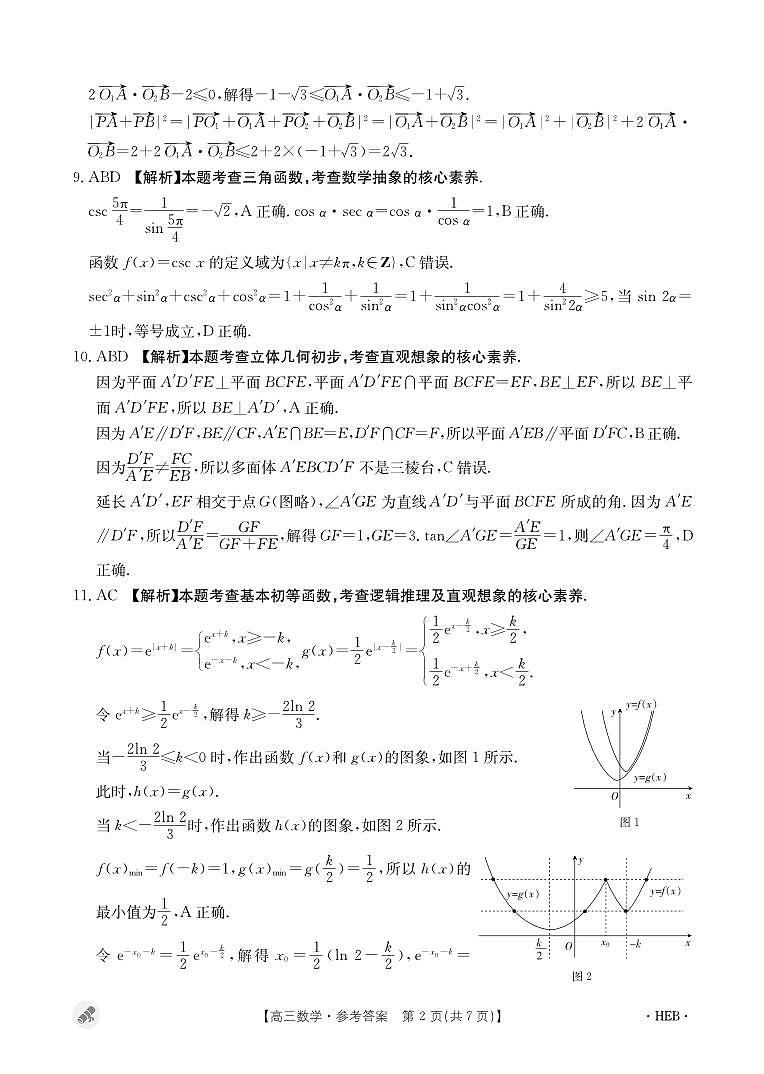 2 O₁A→·O₂B→−2≤0,解得−1−√3≤O₁A→·O₂B→≤−1+√3.
|PA→+PB→|²=|PO₁→+O₁A→+PO₂→+O₂B→|²=|O₁A→+O₂B→|²=|O₁A→|²+|O₂B→|²+2 O₁A→·
O₂B→=2+2 O₁A→·O₂B→≤2+2×(−1+√3)=2√3.
9. ABD 【解析】本题考查三角函数,考查数学抽象的核心素养.
csc 5π/4=1/(sin 5π/4)=−√2,A 正确. cos α·sec α=cos α·1/(cos α)=1,B 正确.
函数 f(x)=csc x 的定义域为{x|x≠kπ,k∈Z},C 错误.
sec²α+sin²α+csc²α+cos²α=1+1/(cos²α)+1/(sin²α)=1+1/(sin²αcos²α)=1+4/(sin²2α)≥5,当 sin 2α=
±1时,等号成立,D 正确.
10. ABD 【解析】本题考查立体几何初步,考查直观想象的核心素养.
因为平面 A′D′FE⊥平面 BCFE,平面 A′D′FE∩平面 BCFE=EF,BE⊥EF,所以 BE⊥平
面 A′D′FE,所以 BE⊥A′D′,A 正确.
因为 A′E∥D′F,BE∥CF,A′E∩BE=E,D′F∩CF=F,所以平面 A′EB∥平面 D′FC,B 正确.
因为D′F/A′E≠FC/EB,所以多面体 A′EBCD′F 不是三棱台,C 错误.
延长 A′D′,EF 相交于点 G(图略),∠A′GE 为直线 A′D′与平面 BCFE 所成的角. 因为 A′E
∥D′F,所以D′F/A′E=GF/(GF+FE),解得 GF=1,GE=3. tan∠A′GE=A′E/GE=1,则∠A′GE=π/4,D
正确.
11. AC 【解析】本题考查基本初等函数,考查逻辑推理及直观想象的核心素养.
f(x)=e^|x+k|={e^(x+k),x≥−k, e^(−x−k),x<−k, g(x)=1/2 e^|x−k/2|={1/2 e^(x−k/2),x≥k/2, 1/2 e^(−x+k/2),x<k/2.
令 e^(x+k)≥1/2 e^(x−k/2),解得 k≥−2ln 2/3.
当−2ln 2/3≤k<0 时,作出函数 f(x)和 g(x)的图象,如图 1 所示.
此时,h(x)=g(x).
当 k<−2ln 2/3时,作出函数 h(x)的图象,如图 2 所示.
y
y=f(x)
y=g(x)
O
x
图 1
f(x)min=f(−k)=1,g(x)min=g(k/2)=1/2,所以 h(x)的
最小值为1/2,A 正确.
令 e^(−x₀−k)=1/2 e^(x₀−k/2),解得 x₀=1/2(ln 2−k/2),e^(−x₀−k)=
y
y=g(x)
y=f(x)
k/2
O
x₀
−k
x
图 2
【高三数学·参考答案 第 2 页(共 7 页)】
·HEB·